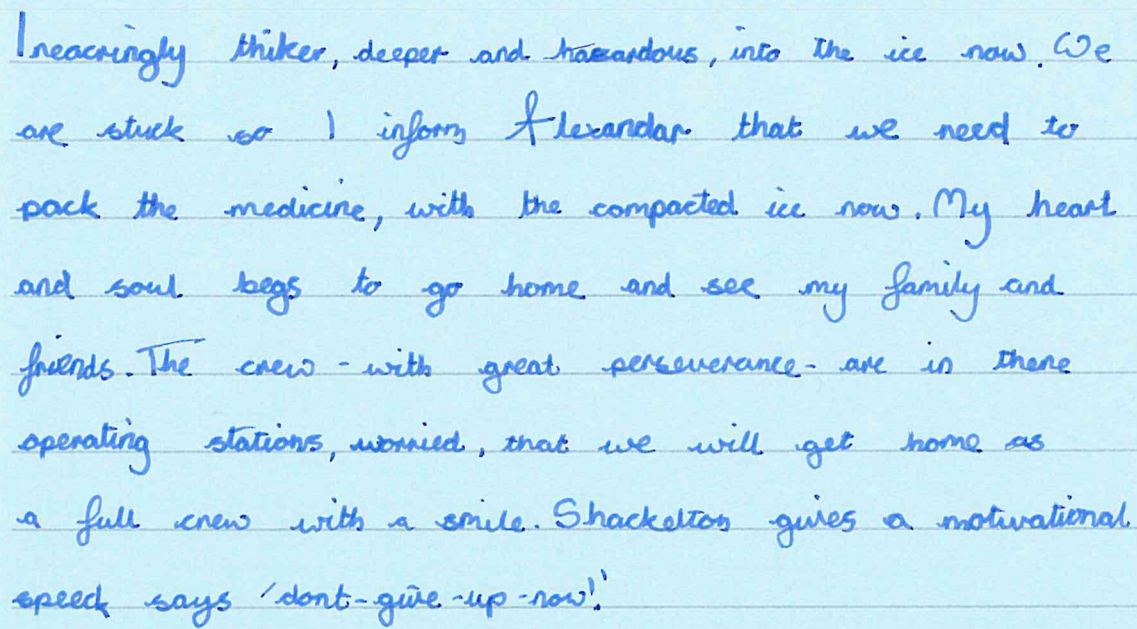 Ineacringly thiker, deeper and hazardous, into the ice now. We
are stuck so I inform Alexandar that we need to
pack the medicine, with the compacted ice now. My heart
and soul begs to go home and see my family and
friends. The crew - with great perseverance - are in there
operating stations, worried, that we will get home as
a full crew with a smile. Shackelton gives a motivational
speeck says 'dont-give-up-now!'